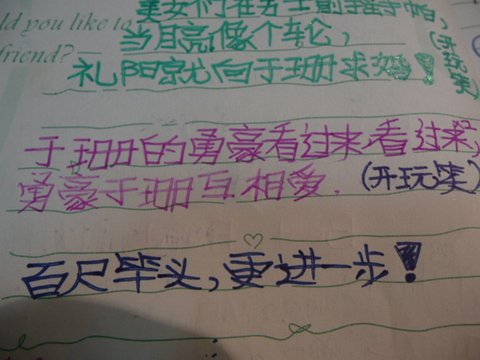 ld you like to
friend?
美女们在男士前踏手帕,
当月亮像个车轮,
(开玩笑)
礼阳就向于珊求婚!
于珊珊的勇豪看过来看过来,
勇豪于珊互相爱.(开玩笑)
百尺竿头,更进一步!